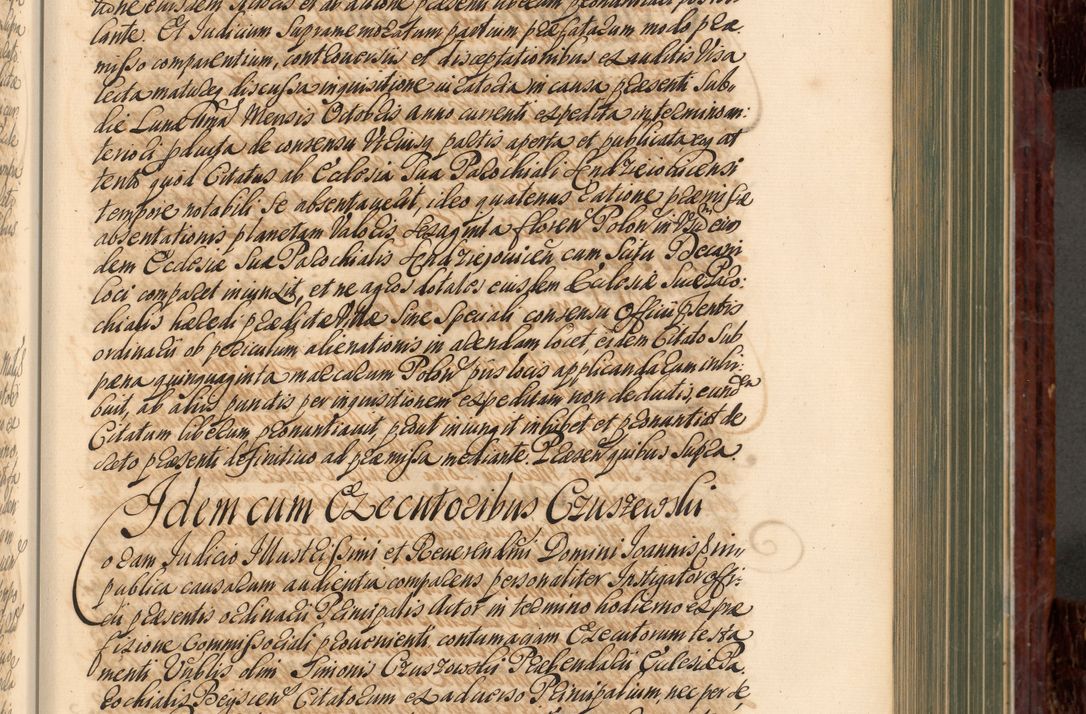 lante. Et Judicium Supranem oratum partium præfatarum modo præ
misso comparentium, controversiis et disceptationibus exauditis Visa
lecta matureq discussa inquisitione in causa præsenti Sub
die Lunæ Mensis Octobris anno currenti expedita in termino an:
teriori de consensu Utriusq partis aperta et publicata
tento quod Citatus ab Ecclesia Sua Parochiali Jendrzeiovicensi
tempore notabili se absentaverit, ideo quatenus ratione præmissæ
absentationis planetam Valoris sexaginta floren Polon in eius
dem Ecclesiæ Suæ Parochialis Jendrzejovicen cum Scitu Decani
loci comparet iniunxit, et ne agros dotales eiusdem Ecclesiæ Suæ Paro:
chialis hæredi prædictæ Villæ Sine Speciali consensu Officii præsentis
ordinarii ob periculum alienationis in arendam locet, eidem Citato Sub
pæna quinquaginta marcarum Polon piis locis applicandarum inhi:
buit, ab aliis punctis per inquisitionem expeditam non deductis, eund
Citatum liberum pronuntiavit, prout iniungit inhibet et pronuntiat de
creto præsenti definitivo ad præmissa mediante. Præsen quibus Supra.
Idem cum Executoribus Czuszewski
Coram Judicio Illustrissimi et Reverendiss Domini Joannis in
publica causarum audientia comparens personaliter Instigator offi:
cii præsentis ordinarii Principalis Actor in termino hodierno ex præ
fixione Commissoriali provenienti contumaciam Executorum testa
menti Urbis olim Simonis Czuszewski Præbendarii Ecclesiæ Pa
rochialis Beyscen Citatorum ex adverso Principalium, nec per se